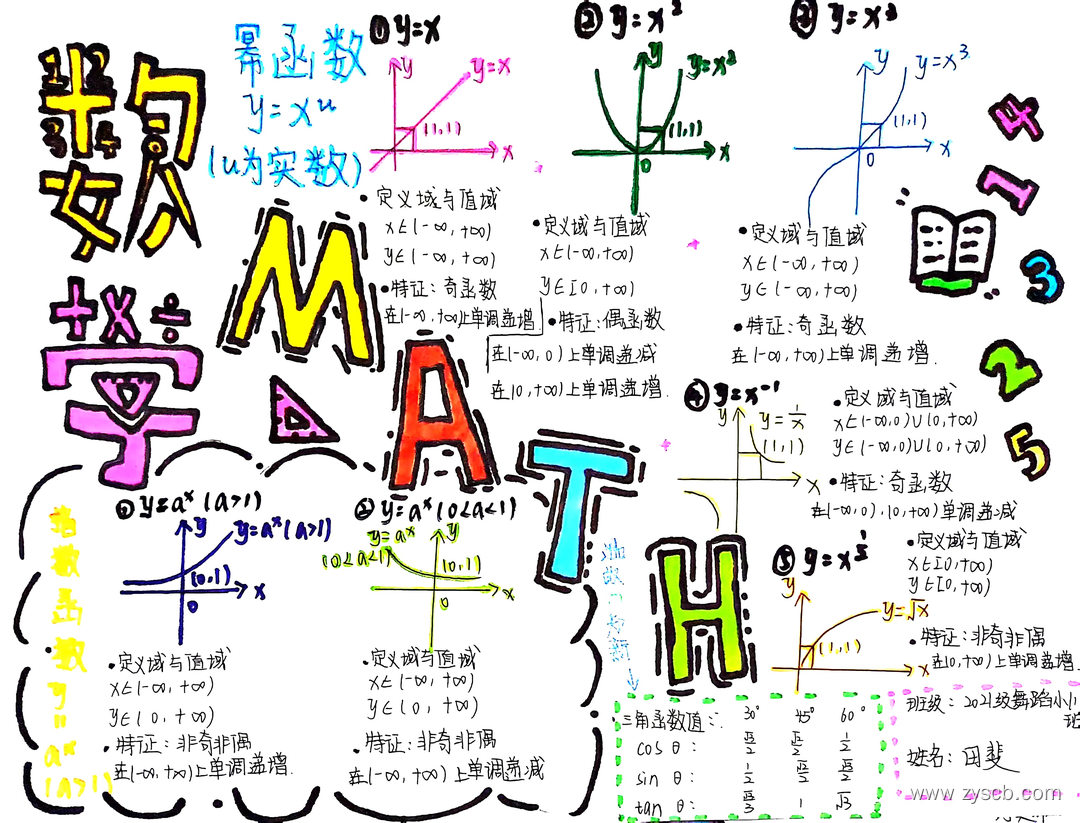 数学
MATH
幂函数
y=xᵘ
(u为实数)
① y=x
y
y=x
(1,1)
x
• 定义域与值域
x∈(-∞,+∞)
y∈(-∞,+∞)
• 特征:奇函数
在(-∞,+∞)上单调递增
② y=x²
y
y=x²
(1,1)
0
x
• 定义域与值域
x∈(-∞,+∞)
y∈[0,+∞)
• 特征:偶函数
在(-∞,0)上单调递减
在(0,+∞)上单调递增.
③ y=x³
y
y=x³
(1,1)
0
x
• 定义域与值域
x∈(-∞,+∞)
y∈(-∞,+∞)
• 特征:奇函数
在(-∞,+∞)上单调递增.
4
1
3
2
5
④ y=x⁻¹
y
y=1/x
(1,1)
x
• 定义域与值域
x∈(-∞,0)∪(0,+∞)
y∈(-∞,0)∪(0,+∞)
• 特征:奇函数
在(-∞,0),(0,+∞)单调递减
⑤ y=x^½
y
y=√x
(1,1)
x
• 定义域与值域
x∈[0,+∞)
y∈[0,+∞)
• 特征:非奇非偶
在(0,+∞)上单调递增.
指数函数 y=aˣ
(a>1)
① y=aˣ(a>1)
y
y=aˣ(a>1)
(0,1)
0
x
• 定义域与值域
x∈(-∞,+∞)
y∈(0,+∞)
• 特征:非奇非偶
在(-∞,+∞)上单调递增.
② y=aˣ(0<a<1)
y=aˣ
(0<a<1)
y
(0,1)
0
x
• 定义域与值域
x∈(-∞,+∞)
y∈(0,+∞)
• 特征:非奇非偶
在(-∞,+∞)上单调递减
三角函数值: 30° 45° 60°
cos θ: √3/2 √2/2 1/2
sin θ: 1/2 √2/2 √3/2
tan θ: √3/3 1 √3
班级:2021级舞蹈小1班
姓名:田斐
www.zyscb.com